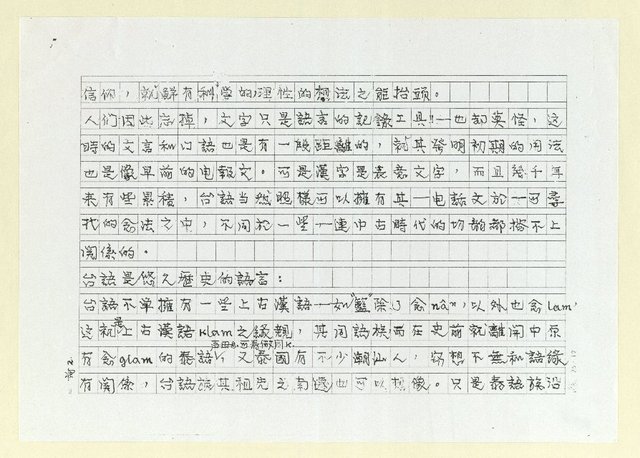 信仰，就鮮有科学的理性的想法之能抬頭。
人们因此忘掉，文字只是語言的記錄工具！一也都莫怪，这
時的文言和口語也是有一段距離的，就其發明初期的用法
也是像早前的电報文。可是漢字是表意文字，而且幾千年
来有些累積，台語当然照樣可以擁有其一电語文於一可尋
找的念法之中，不同於一些一連中古時代的切韵都搭不上
関係的。
台語是悠久歷史的語言：
台語不单擁有一些上古漢語一如"藍"除了念nâ，以外也念lam，
这就是上古漢語klam之緣親，其同語族而在史前就離開中原
有念glam的泰語，又泰國有不少潮汕人，窃想不無和語緣
有関係，台語族其祖先之南遷也可以想像。只是泰語族沿